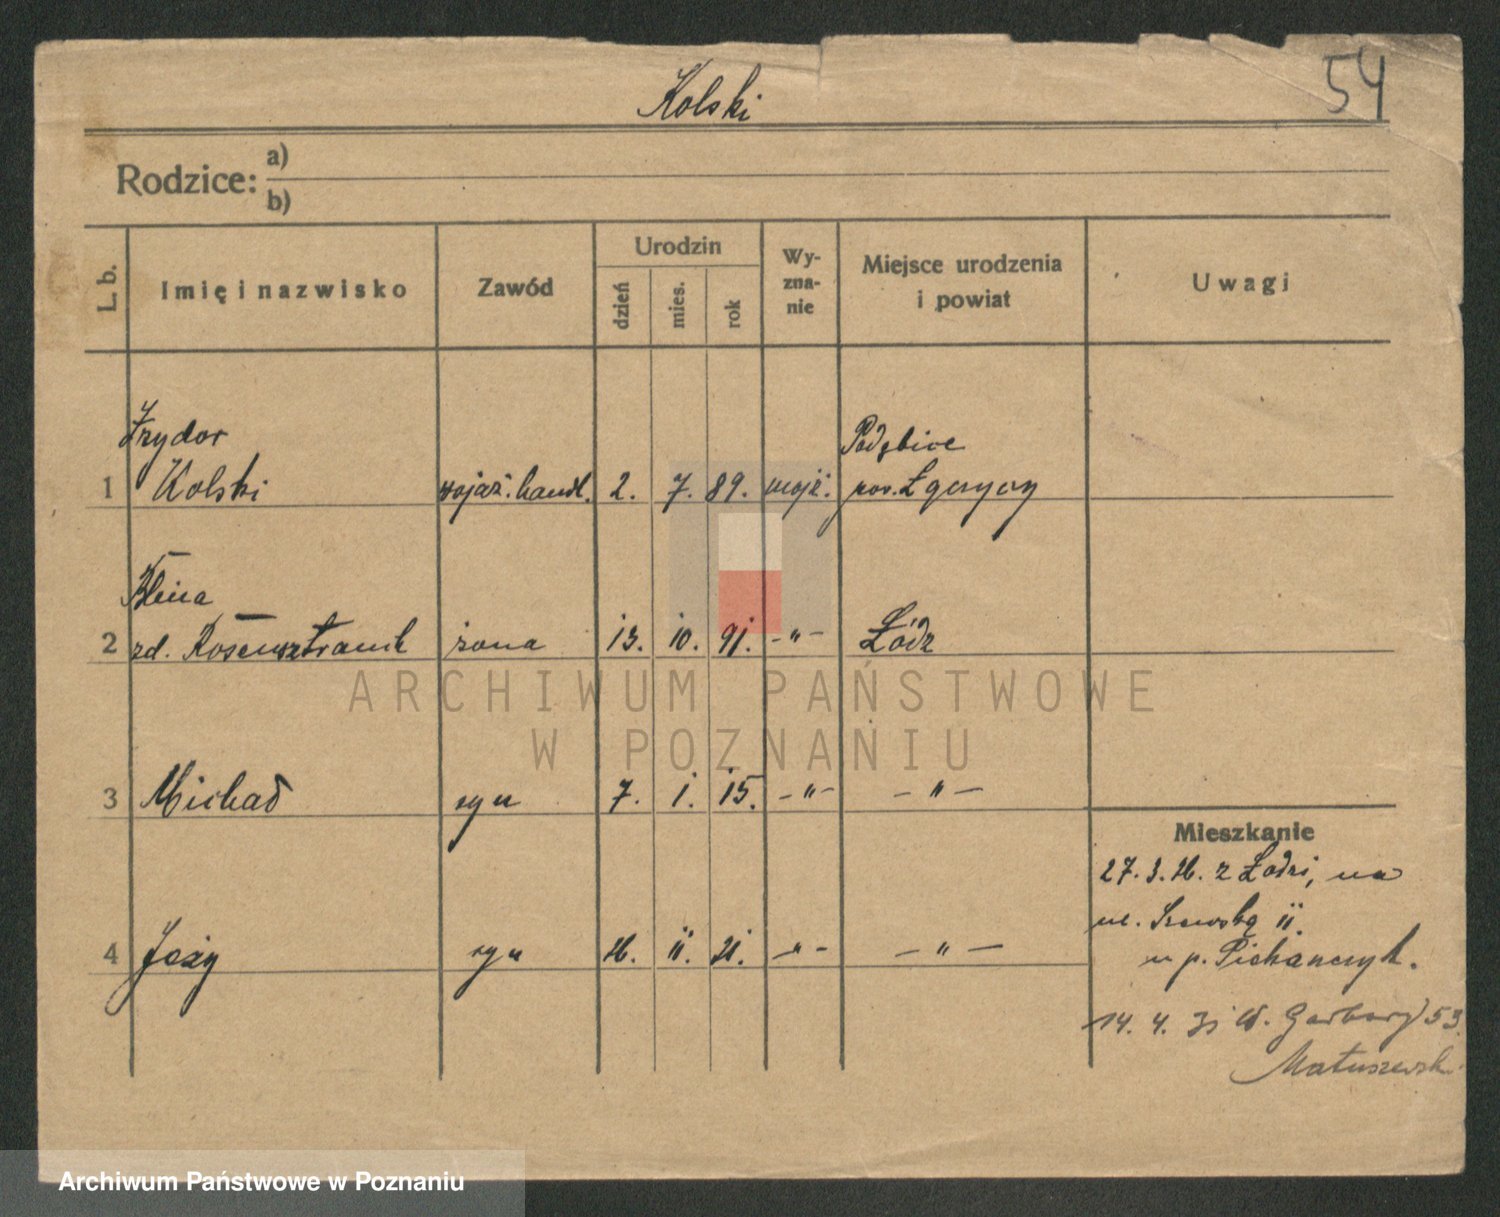 54
Kolski
Rodzice: a)
b)
L. b.
Imię i nazwisko
Zawód
Urodzin
dzień
mies.
rok
Wy-
zna-
nie
Miejsce urodzenia
i powiat
Uwagi
Izydor
Podębice
1 Kolski wojaż. handl. 2. 7. 89. mojż. pow. Łęczycy
2 zd. żona 13. 10. 91. -"- Łódź
3 Michał syn 7. 1. 15. -"- -"-
4 Jeży syn 11. 21. -"- -"-
Mieszkanie
27. 3. z Łodzi, na
ul. Szewską 11.
u p.
14. 4. 31 W. Garbary 53
ARCHIWUM PAŃSTWOWE
W POZNANIU
Archiwum Państwowe w Poznaniu